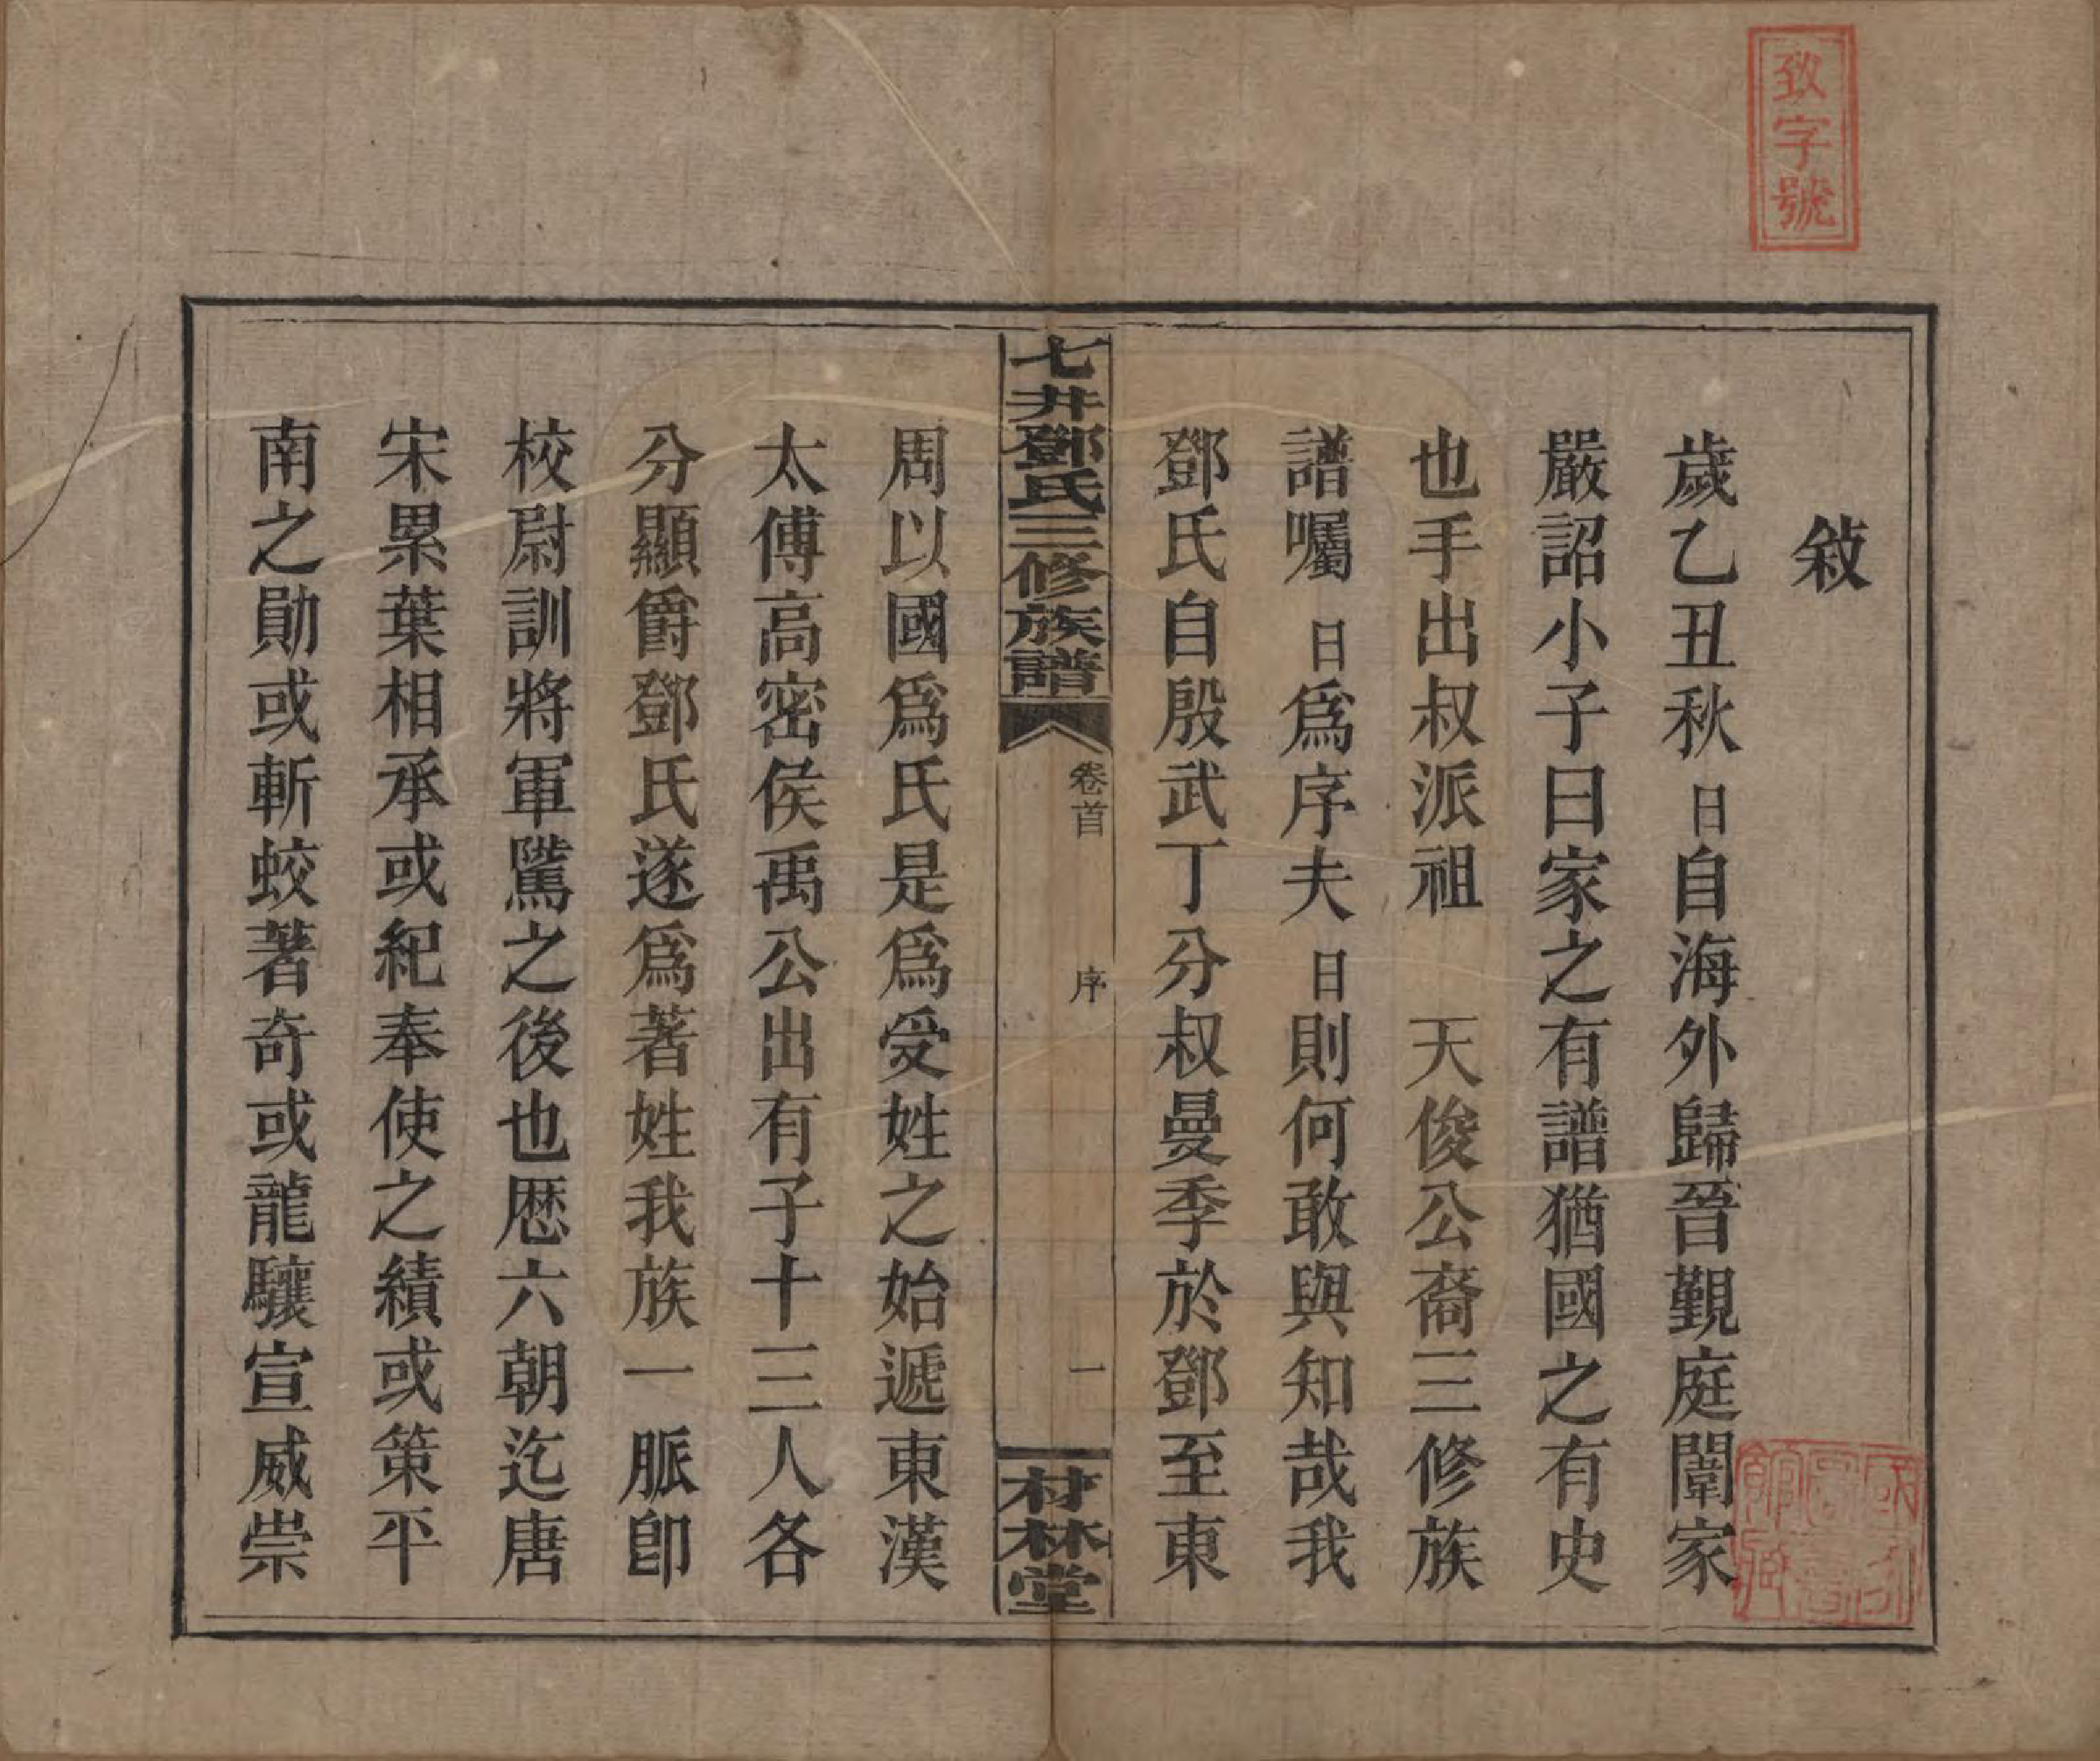 致字號
敘
歲乙丑秋日自海外歸晉覲庭闈家
嚴詔小子曰家之有譜猶國之有史
也手出叔派祖　天俊公裔三修族
譜囑日為序夫日則何敢與知哉我
鄧氏自殷武丁分叔曼季於鄧至東
七井鄧氏三修族譜
卷首
序
一
材林堂
周以國爲氏是爲受姓之始遞東漢
太傅高密侯禹公出有子十三人各
分顯爵鄧氏遂爲著姓我族一脈卽
校尉訓將軍騭之後也歷六朝迄唐
宋累葉相承或紀奉使之績或策平
南之勛或斬蛟著奇或龍驤宣威崇